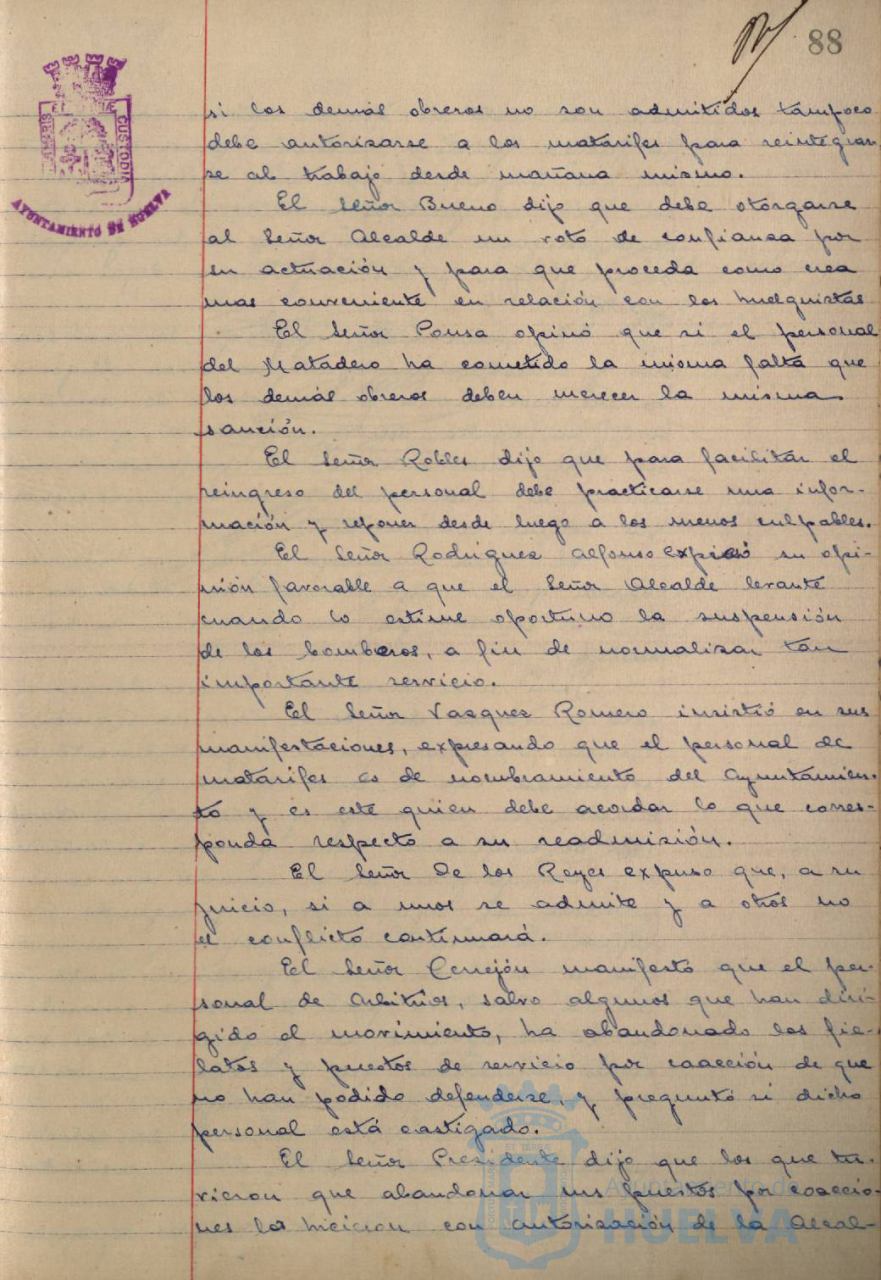 88
MARIS
CUSTODIA
AYUNTAMIENTO DE HUELVA
si los demás obreros no son admitidos tampoco
debe autorizarse a los matarifes para reintegrar
se al trabajo desde mañana mismo.
El Señor Bueno dijo que debe otorgarse
al Señor Alcalde un voto de confianza por
su actuación y para que proceda como crea
mas conveniente en relación con los huelguistas
El Señor Ponsa opinó que si el personal
del Matadero ha cometido la misma falta que
los demás obreros deben merecer la misma
sanción.
El Señor Robles dijo que para facilitar el
reingreso del personal debe practicarse una infor-
mación y reponer desde luego a los menos culpables.
El Señor Rodriguez Alfonso expresó su opi-
nión favorable a que el Señor Alcalde levante
cuando lo estime oportuno la suspensión
de los bomberos, a fin de normalizar tan
importante servicio.
El Señor Vazquez Romero insistió en sus
manifestaciones, expresando que el personal de
matarifes es de nombramiento del Ayuntamien-
to y es este quien debe acordar lo que corres-
ponda respecto a su readmisión.
El Señor De los Reyes expuso que, a su
juicio, si a unos se admite y a otros no
el conflicto continuará.
El Señor Cerrejón manifestó que el per-
sonal de Arbitrios, salvo algunos que han diri-
gido el movimiento, ha abandonado los fie-
latos y puestos de servicio por coacción de que
no han podido defenderse, y preguntó si dicho
personal está castigado.
El Señor Presidente dijo que los que tu-
vieron que abandonar sus puestos por coaccio-
nes lo hicieron con autorización de la Alcal-
Ayuntamiento de
HUELVA